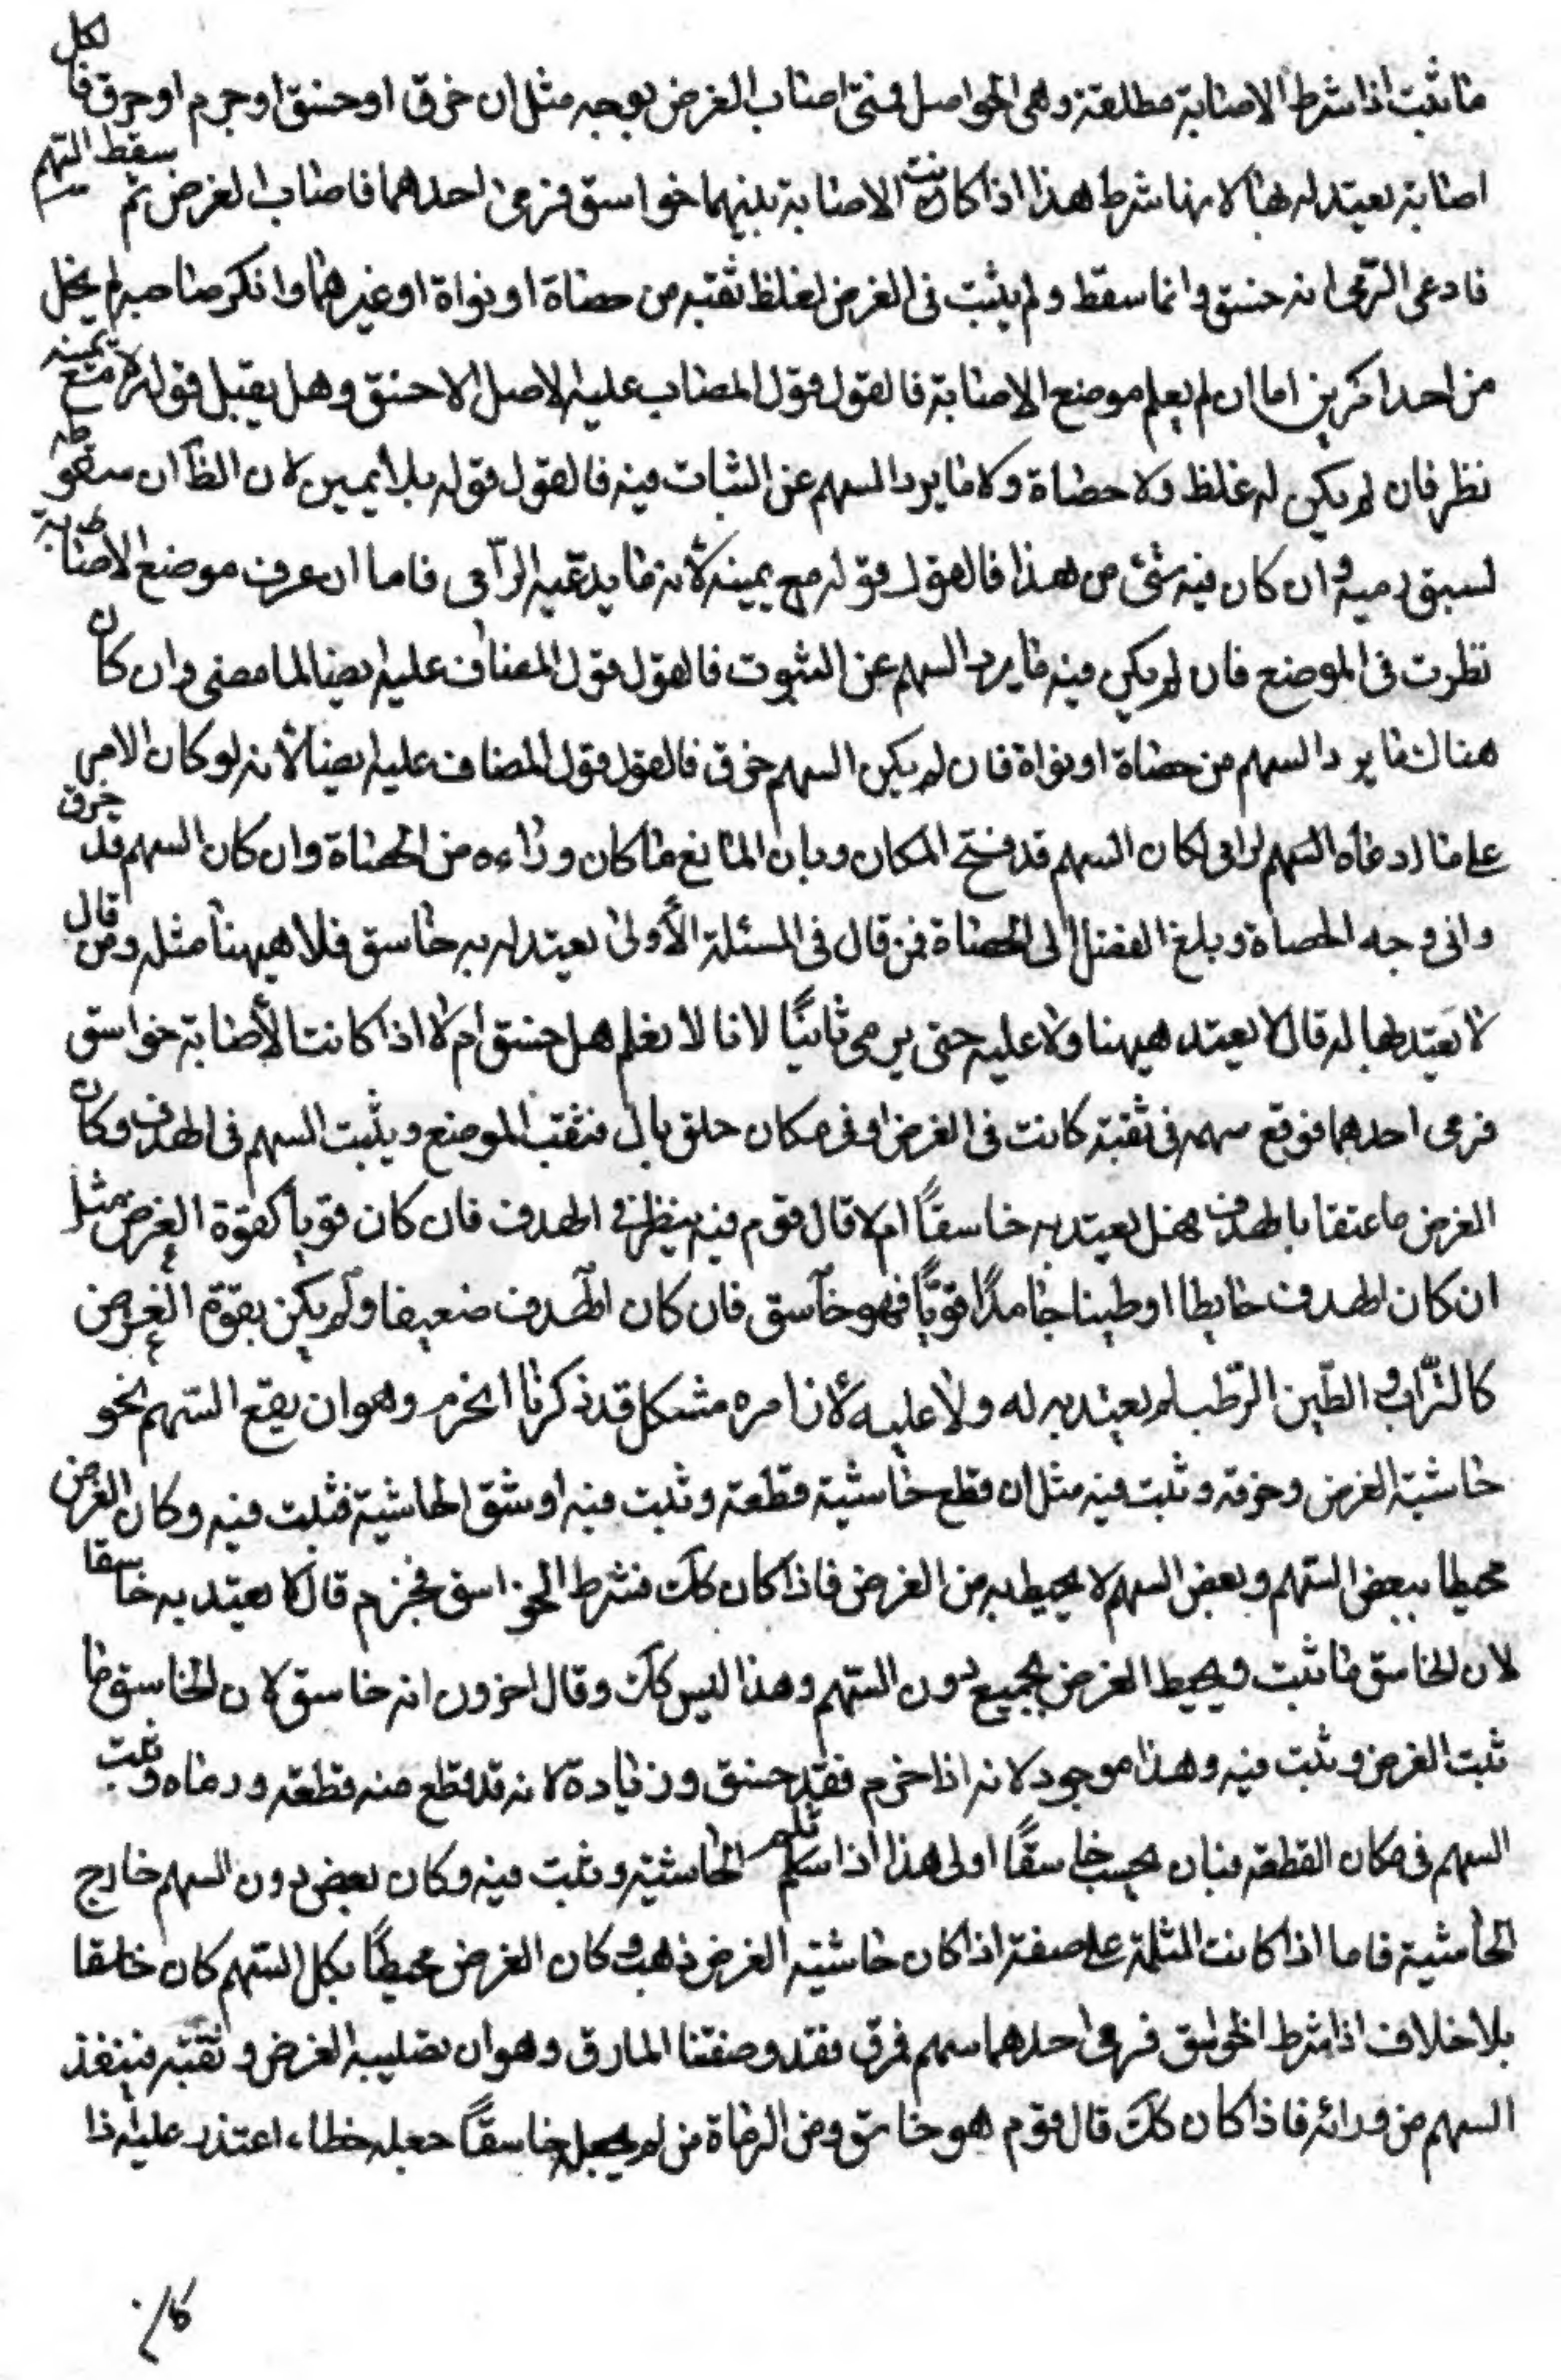 ما يثبت اذا شرط الاصابة مطلقة وهى الحواصل فمتى اصاب الغرض بوجه مثل ان خرق او خسق او خرم او مرق فا لكل
اصابة يعتد له بها لانها شرط هذا اذا كانت الاصابة بينهما خواسق فرمى احدهما فاصاب الغرض ثم سقط السّهم
فادعى الرّامى انه خسق وانما سقط ولم يثبت فى الغرض لغلظ لقيه من حصاة او نواة او غيرهما وانكر صاحبه لم يخل
من احد امرين اما ان لم يعلم موضع الاصابة فالقول قول المصاب عليه لان الاصل الا خسق وهل يقبل قوله مع يمينه
نظر فان لم يكن له غلظ ولا حصاة ولا ما يرد السهم عن الثبات فيه فالقول قوله بلا يمين لان الظ ان سقوطه
لسبق رميه وان كان فيه شئ من هذا فالقول قوله مع يمينه لأنه ما يدعيه الرّامى فاما ان عرف موضع الاصابة
نظرت فى الموضع فان لم يكن فيه ما يرد السهم عن الثبوت فالقول قول المضاف عليه ايضا لما مضى وان كان
هناك ما يرد السهم من حصاة او نواة فان لم يكن السهم خرق فالقول قول المضاف عليه ايضا لأنه لو كان الامر
على ما ادعاه السّهم لرامى لكان السهم قد فتح المكان وبان المانع ما كان وراءه من الحصاة وان كان السهم قد خرق
وانى وجه الحصاة وبلغ الفصل الى الحصاة فمن قال فى المسئلة الأولى يعتد له به خاسق فلا هيهنا مثله ومن قال
لا يعتد بها له قال لا يعتد هيهنا ولا عليه حتى يرمى ثانيًا لانا لا نعلم هل خسق ام لا اذا كانت الأصابة خواسق
فرمى احدهما فوقع سهمه فى ثقبة كانت فى الغرض او فى مكان خلق بال فثقب الموضع ويثبت السهم فى الهدف وكان
الغرض ملصقا بالهدف فهل يعتد به خاسقًا ام لا قال قوم فيه ينظر فى الهدف فان كان قويا كقوة الغرض مثل
ان كان الهدف حايطا او طينا جامدًا قويًّا فهو خاسق فان كان الهدف ضعيفا ولم يكن بقوة الغرض
كالتّراب والطّين الرّطب لم يعتد به له ولا عليه لأن امره مشكل قد ذكرنا الخرم وهو ان يقع السّهم نحو
حاشية الغرض وخرقه وثبت فيه مثل ان قطع حاشية قطعة وثبت فيه او شق الحاشية فثبت فيه وكان الغرض
محيطا ببعض السّهم وبعض السهم لا يحيط به من الغرض فاذا كان كك فشرط الخواسق فخرم قال لا يعتد به خاسقا
لان الخاسق ما ثبت ويحيط الغرض بجميع دون السّهم وهذا ليس كك وقال اخرون انه خاسق لان الخاسق ما
ثبت الغرض وثبت فيه وهذا موجود لانه اذا خرم فقد خسق وزيادة لانه قد قطع منه قطعة ورماه وثبت
السهم فى مكان القطعة فبان يحسب خاسقًا اولى هذا اذا ثلم الحاشية وثبت فيه وكان بعض دون السهم خارج
الحاشية فاما اذا كانت الثلمة على صفة اذا كان حاشية الغرض ذهب وكان الغرض محيطًا بكل السّهم كان خاسقا
بلا خلاف اذا شرط الخواسق فرمى احدهما سهم فمرق فقد وصفنا المارق وهو ان يصيب الغرض و ثقبه فينفذ
السهم من ورائه فاذا كان كك قال قوم هو خاسق ومن الرماة من لم يجعله خاسقًا جعله خطاء اعتد عليه اذا
كان